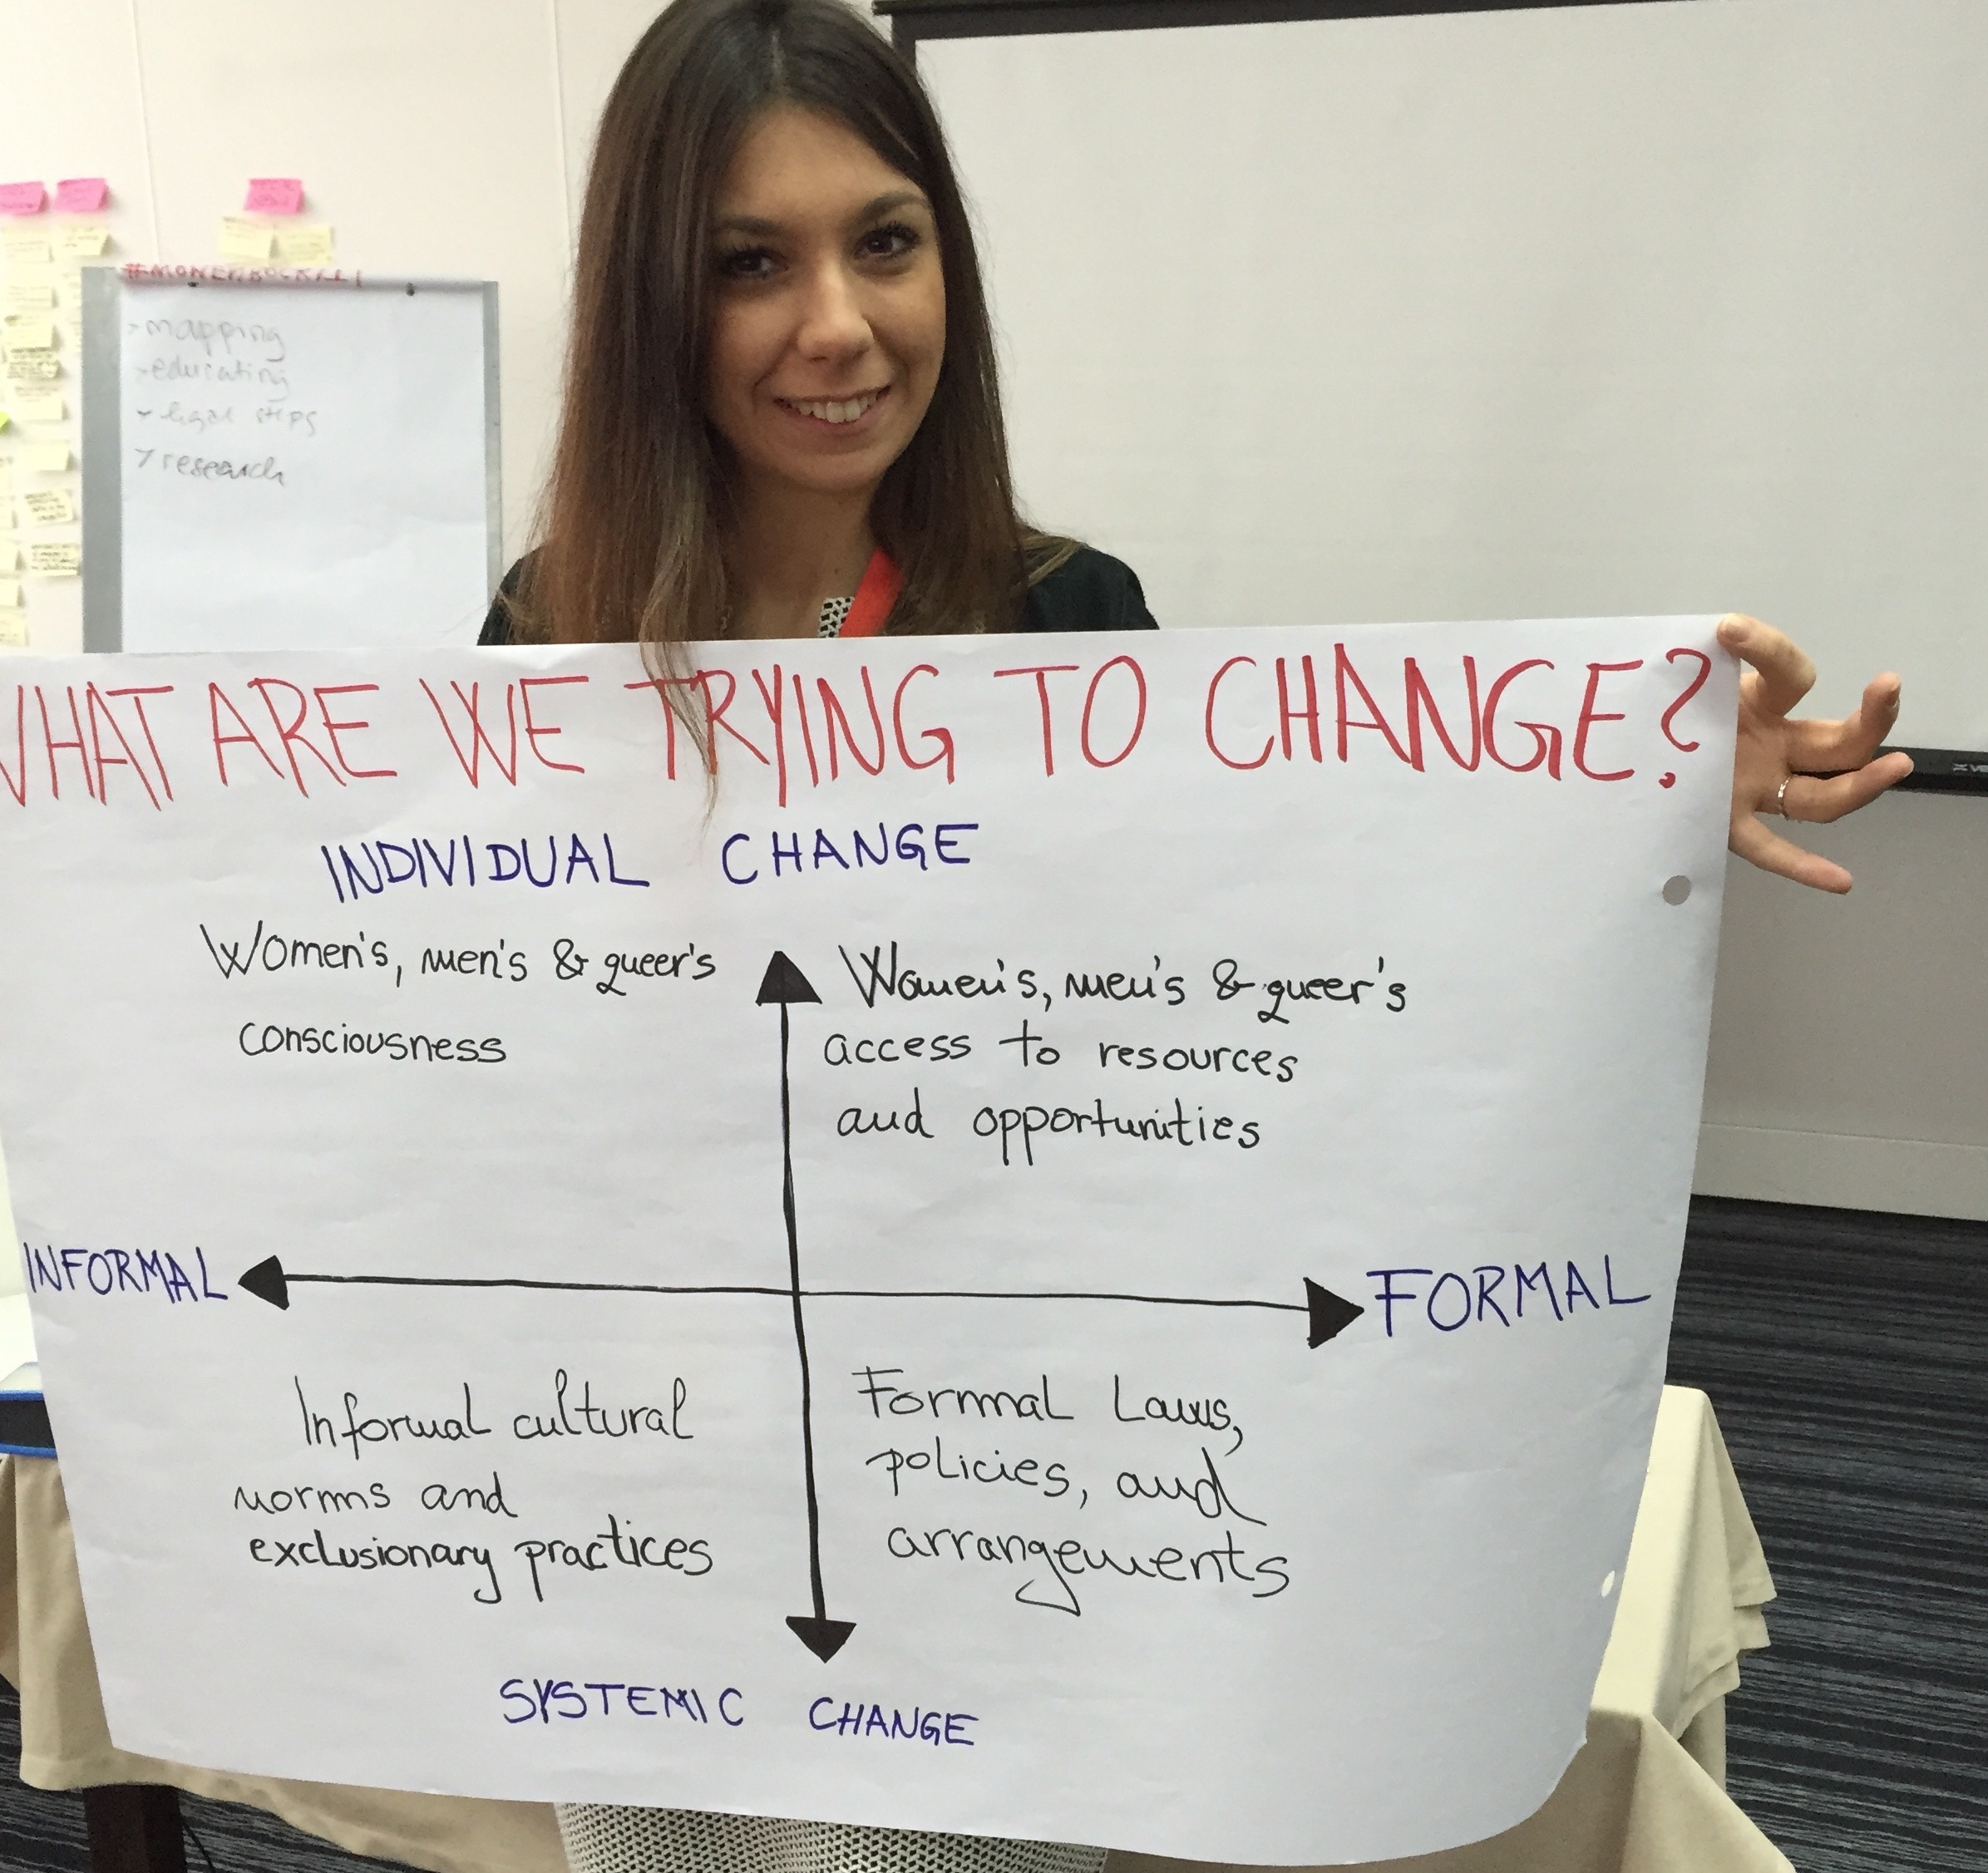 > mapping
> educating
> legal steps
> research
WHAT ARE WE TRYING TO CHANGE?
INDIVIDUAL CHANGE
Women's, men's & queer's
consciousness
Women's, men's & queer's
access to resources
and opportunities
INFORMAL
FORMAL
Informal cultural
norms and
exclusionary practices
Formal Laws,
policies, and
arrangements
SYSTEMIC CHANGE